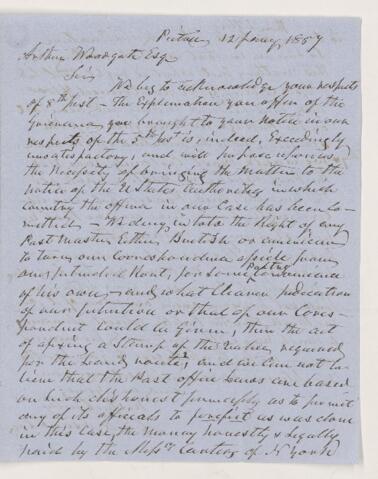 Pictou, 12 Jany, 1857
Arthur Woodgate Esq
Sir,
We beg to acknowledge your respects
of 8th Inst – The Explanation you offer of the
Grievance we brought to your notice in our
respects of the 5th Inst is, indeed, Exceedingly
unsatisfactory, and will impose upon us
the Necessity of bringing the Matter to the
notice of the U States Authorities in which
country the offence in our Case has been Co-
mmitted – We deny in toto the Right of any
Post Master Either British or American
to turn our Correspondence aside from
our intended Rout, for some Postal Convenience
of his own, – and what Clearer indication
of our intention or that of our Corres-
pondent Could be Given, than the act
of affixing a Stamp of the Value, required
for the Land route, and we Can not be-
lieve that the Post office Laws are based
on such dishonest principles as to permit
any of its officials to forfeit as was done
in this Case, the money honestly & legally
paid by the Messrs of N York